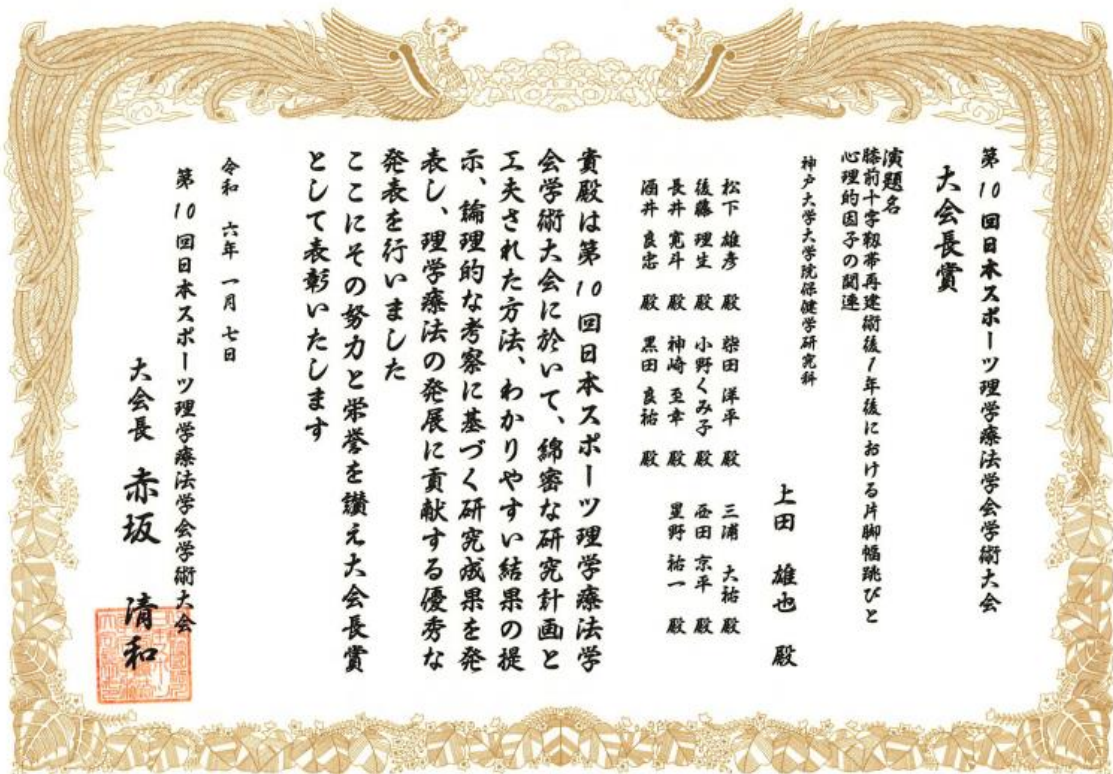 第10回日本スポーツ理学療法学会学術大会
大会長賞
演題名
膝前十字靱帯再建術後1年後における片脚幅跳びと
心理的因子の関連
神戸大学大学院保健学研究科
上田 雄也 殿
松下 雄彦 殿 柴田 洋平 殿 三浦 大祐 殿
後藤 理生 殿 小野くみ子 殿 西田 京平 殿
長井 寛斗 殿 神崎 至幸 殿 星野 祐一 殿
酒井 良忠 殿 黒田 良祐 殿
貴殿は第10回日本スポーツ理学療法学
会学術大会に於いて、綿密な研究計画と
工夫された方法、わかりやすい結果の提
示、論理的な考察に基づく研究成果を発
表し、理学療法の発展に貢献する優秀な
発表を行いました
ここにその努力と栄誉を讃え大会長賞
として表彰いたします
令和 六年 一月 七日
第10回日本スポーツ理学療法学会学術大会
大会長 赤坂 清和